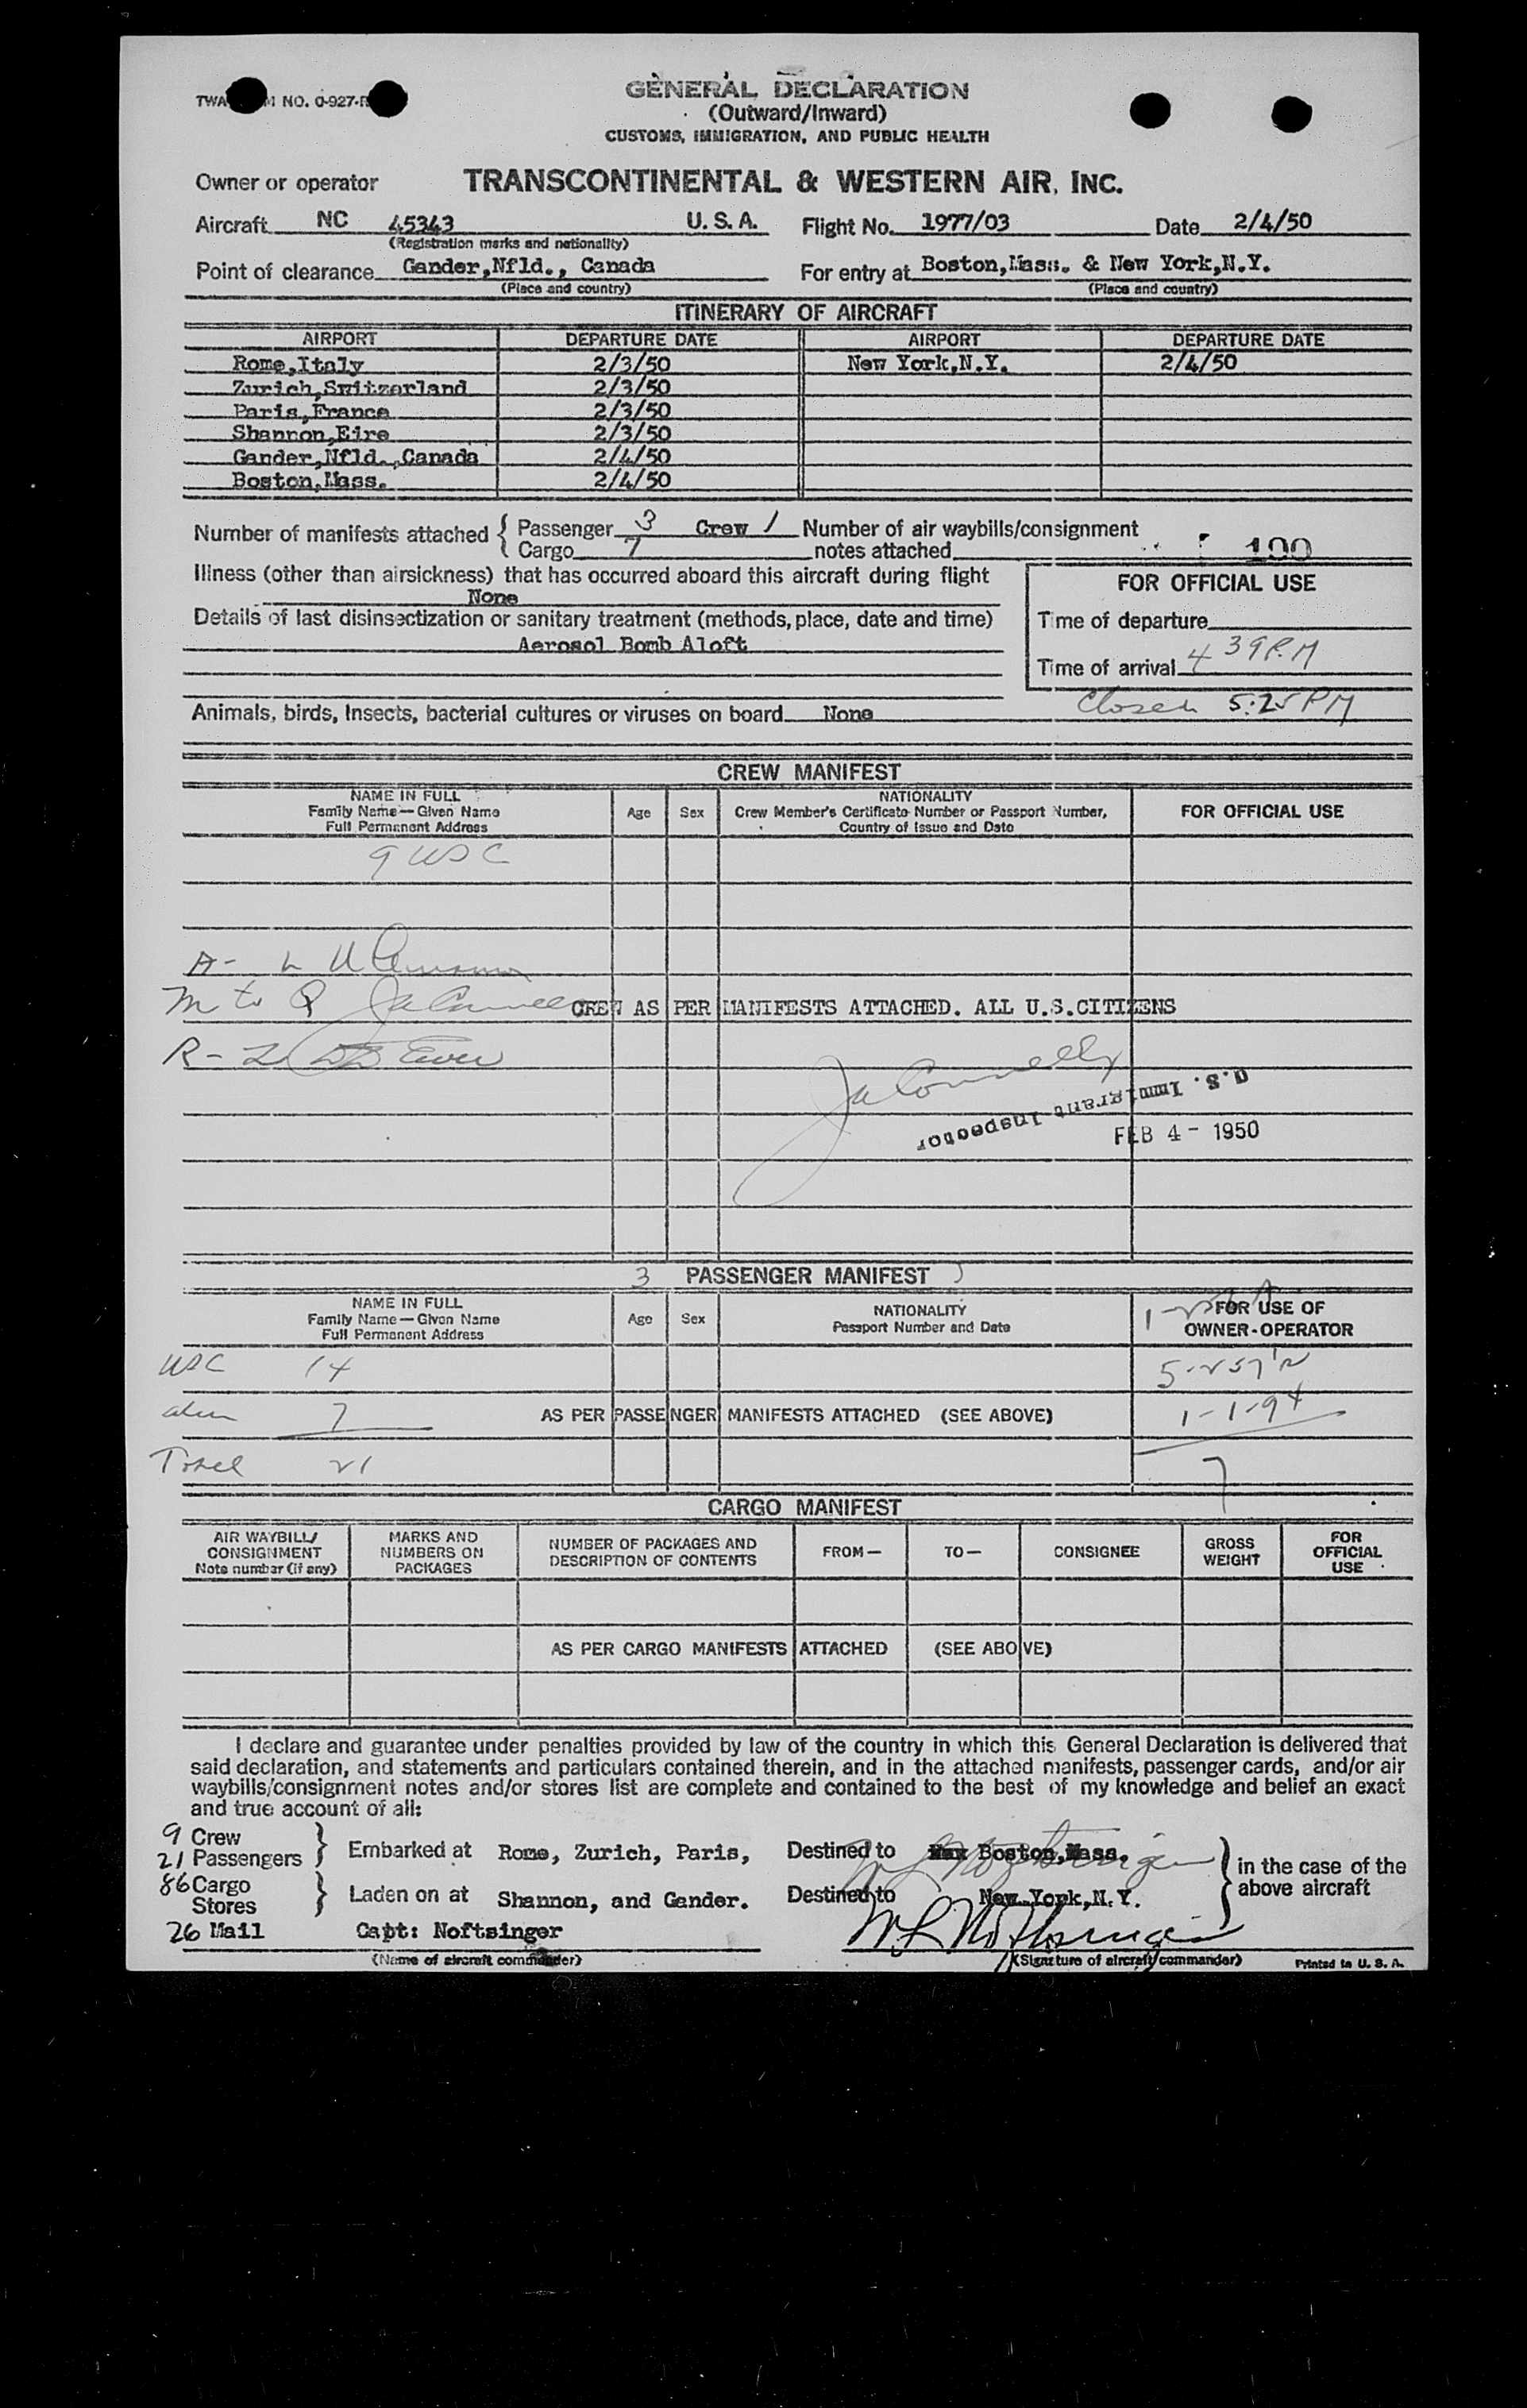 GENERAL DECLARATION
TWA M NO. 0-927-R
(Outward/Inward)
CUSTOMS, IMMIGRATION, AND PUBLIC HEALTH
Owner or operator TRANSCONTINENTAL & WESTERN AIR, INC.
Aircraft NC 45343 U.S.A. Flight No. 1977/03 Date 2/4/50
(Registration marks and nationality)
Point of clearance Gander,Nfld., Canada For entry at Boston,Mass. & New York,N.Y.
(Place and country) (Place and country)
ITINERARY OF AIRCRAFT
AIRPORT DEPARTURE DATE AIRPORT DEPARTURE DATE
Rome,Italy 2/3/50 New York,N.Y. 2/4/50
Zurich,Switzerland 2/3/50
Paris,France 2/3/50
Shannon,Eire 2/3/50
Gander,Nfld.,Canada 2/4/50
Boston,Mass. 2/4/50
Number of manifests attached { Passenger 3 Crew 1 Number of air waybills/consignment
Cargo 7 notes attached 100
Illness (other than airsickness) that has occurred aboard this aircraft during flight
None
FOR OFFICIAL USE
Details of last disinsectization or sanitary treatment (methods, place, date and time)
Aerosol Bomb Aloft
Time of departure
Time of arrival 4 39 P.M
Closed 5:25 PM
Animals, birds, insects, bacterial cultures or viruses on board None
CREW MANIFEST
NAME IN FULL
Family Name—Given Name
Full Permanent Address
Age Sex
NATIONALITY
Crew Member's Certificate Number or Passport Number,
Country of Issue and Date
FOR OFFICIAL USE
9 USC
A-
M to Q
CREW AS PER MANIFESTS ATTACHED. ALL U.S.CITIZENS
R - Z
Ja Connelly
U.S. Immigrant Inspector
FEB 4 - 1950
3 PASSENGER MANIFEST
NAME IN FULL
Family Name—Given Name
Full Permanent Address
Age Sex
NATIONALITY
Passport Number and Date
FOR USE OF
OWNER-OPERATOR
USC 14
alien 7 AS PER PASSENGER MANIFESTS ATTACHED (SEE ABOVE)
Total 21 7
CARGO MANIFEST
AIR WAYBILL/
CONSIGNMENT
Note number (if any)
MARKS AND
NUMBERS ON
PACKAGES
NUMBER OF PACKAGES AND
DESCRIPTION OF CONTENTS
FROM— TO— CONSIGNEE
GROSS
WEIGHT
FOR
OFFICIAL
USE
AS PER CARGO MANIFESTS ATTACHED (SEE ABOVE)
I declare and guarantee under penalties provided by law of the country in which this General Declaration is delivered that
said declaration, and statements and particulars contained therein, and in the attached manifests, passenger cards, and/or air
waybills/consignment notes and/or stores list are complete and contained to the best of my knowledge and belief an exact
and true account of all:
9 Crew
21 Passengers } Embarked at Rome, Zurich, Paris, Destined to Boston,Mass.
86 Cargo
Stores } Laden on at Shannon, and Gander. Destined to New York,N.Y.
} in the case of the
above aircraft
26 Mail Capt: Noftsinger W L Noftsinger
(Name of aircraft commander) (Signature of aircraft commander) Printed in U. S. A.